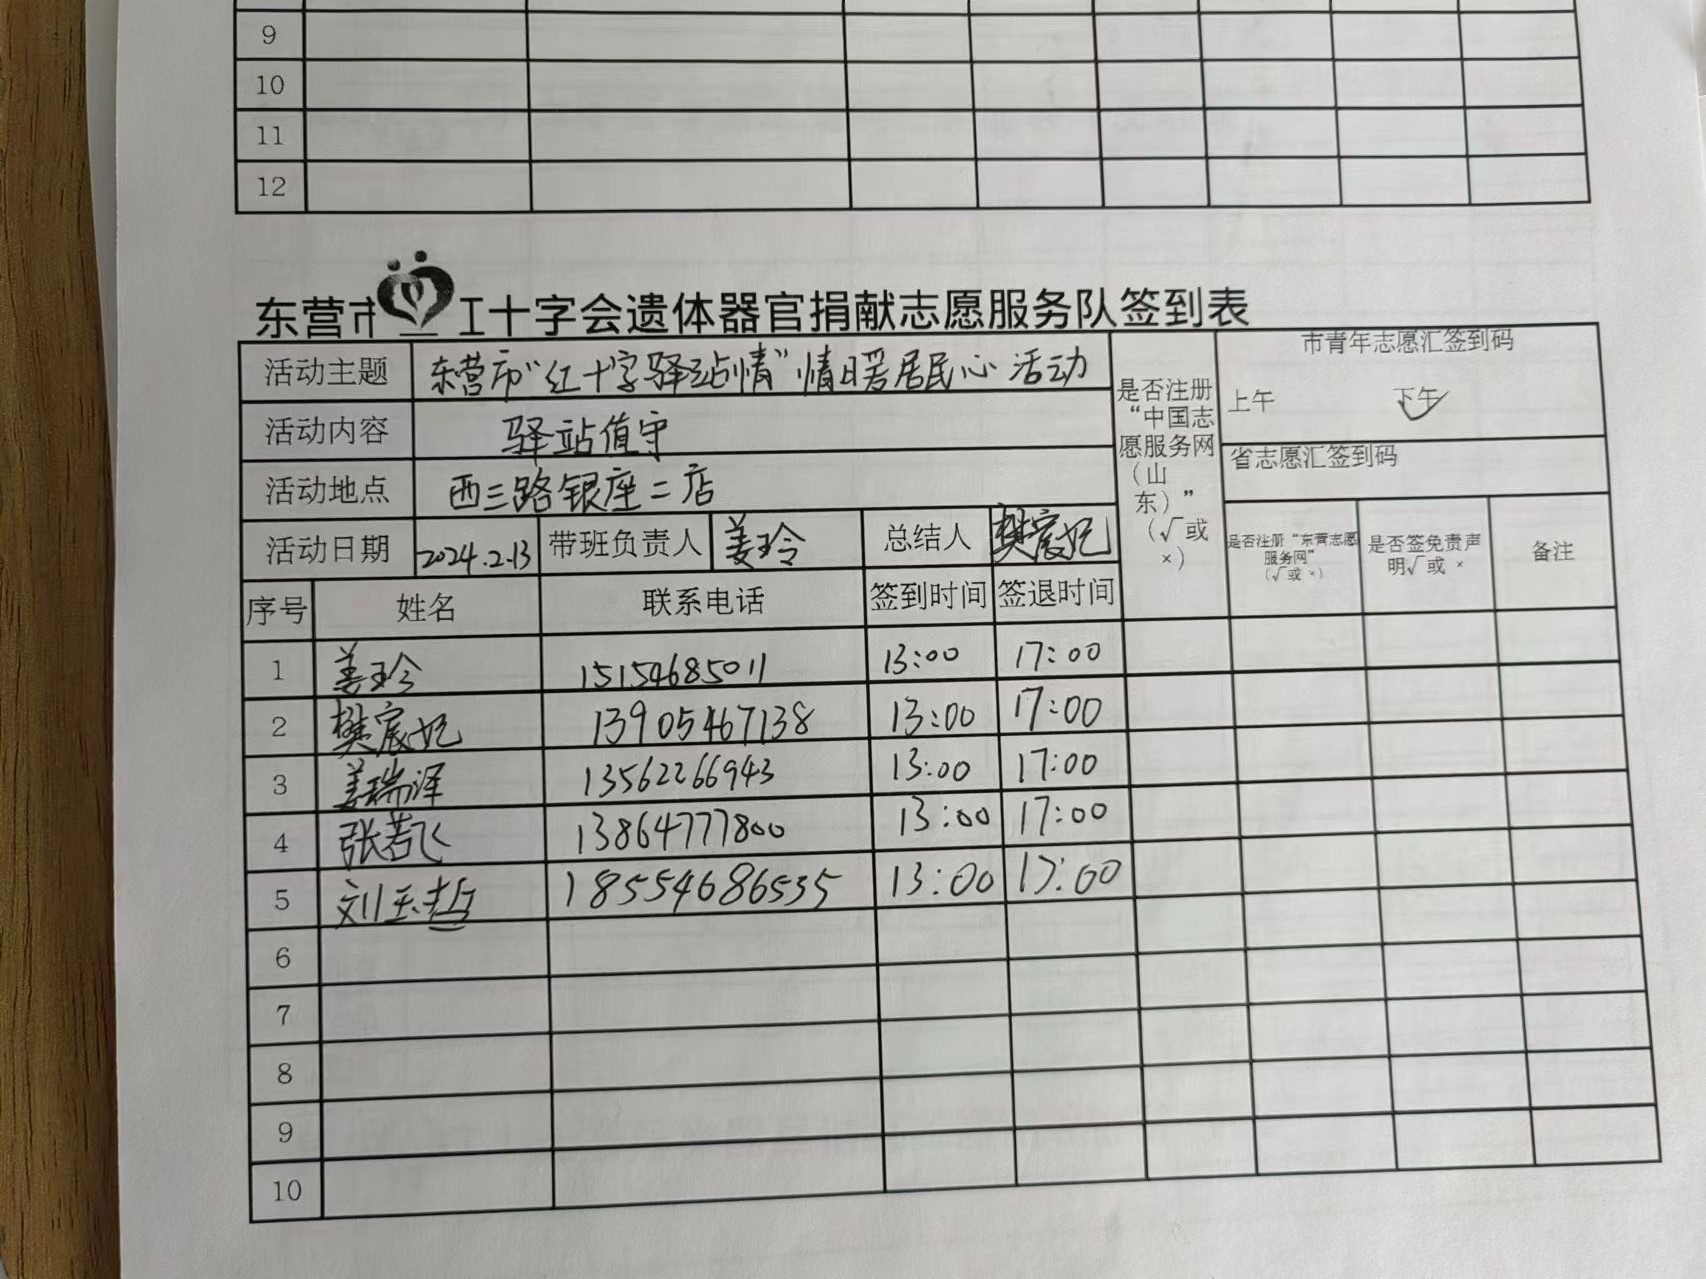 9
10
11
12
东营市 红十字会遗体器官捐献志愿服务队签到表
活动主题 东营市“红十字驿站情”情暖居民心活动
活动内容 驿站值守
活动地点 西三路银座二店
活动日期 2024.2.13 带班负责人 姜玲 总结人 樊宸妃
是否注册
“中国志
愿服务网
(山
东)”
(√或
×)
市青年志愿汇签到码
上午 下午 ✓
省志愿汇签到码
是否注册“东营志愿
服务网”
(√或 ×)
是否签免责声
明√或 ×
备注
序号 姓名 联系电话 签到时间 签退时间
1 姜玲 15154685011 13:00 17:00
2 樊宸妃 13905467138 13:00 17:00
3 姜瑞泽 13562266943 13:00 17:00
4 张若飞 13864777800 13:00 17:00
5 刘玉哲 18554686535 13:00 17:00
6
7
8
9
10